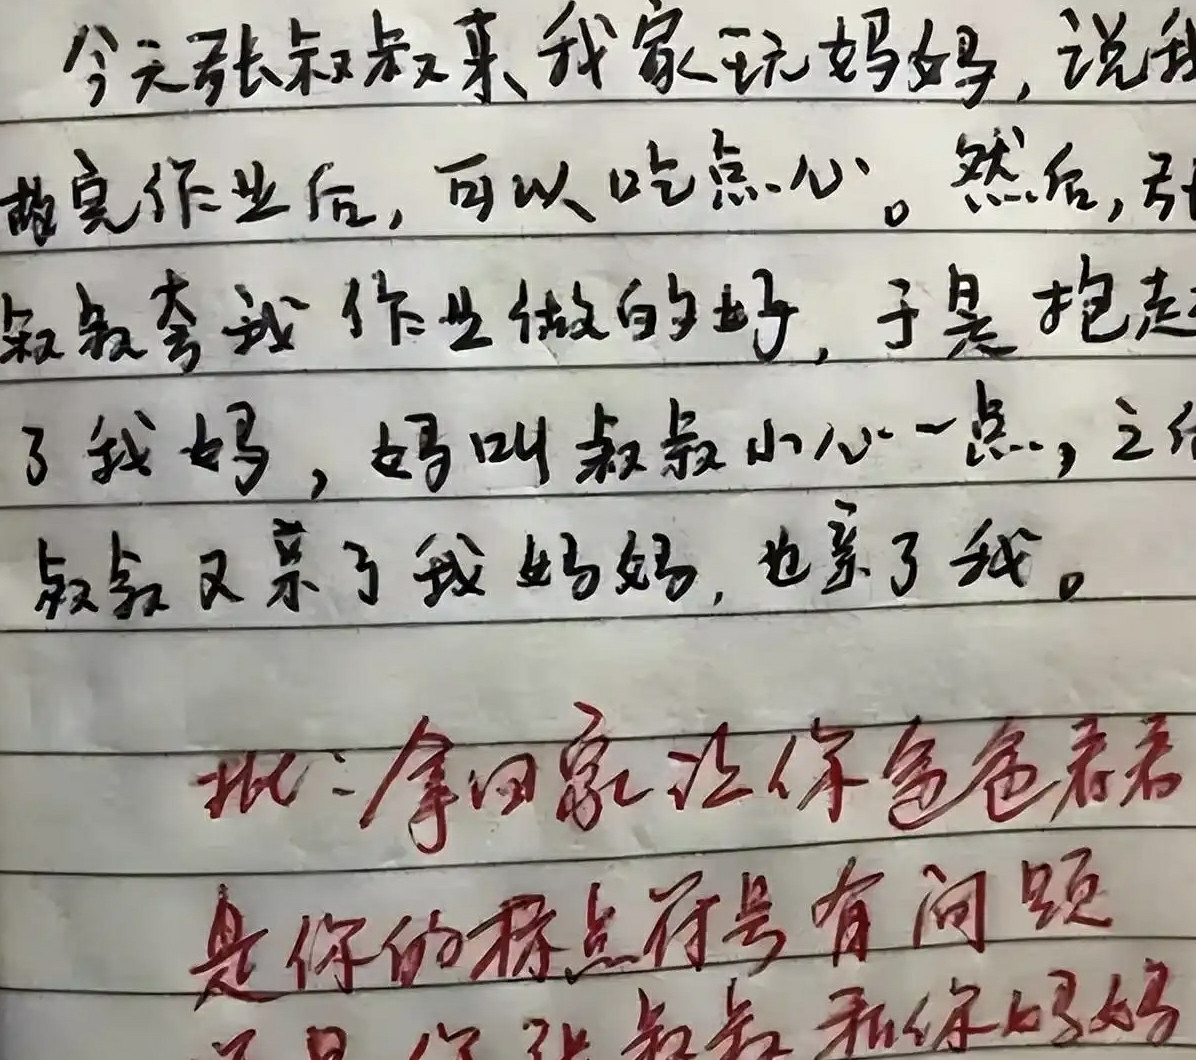 今天张叔叔来我家玩妈妈，说我
做完作业后，可以吃点心。然后，张
叔叔夸我作业做的好，于是抱起
了我妈，妈叫叔叔小心一点，之后
叔叔又亲了我妈妈，也亲了我。
批：拿回家让你爸爸看看
是你的标点符号有问题
还是你张叔叔和你妈妈